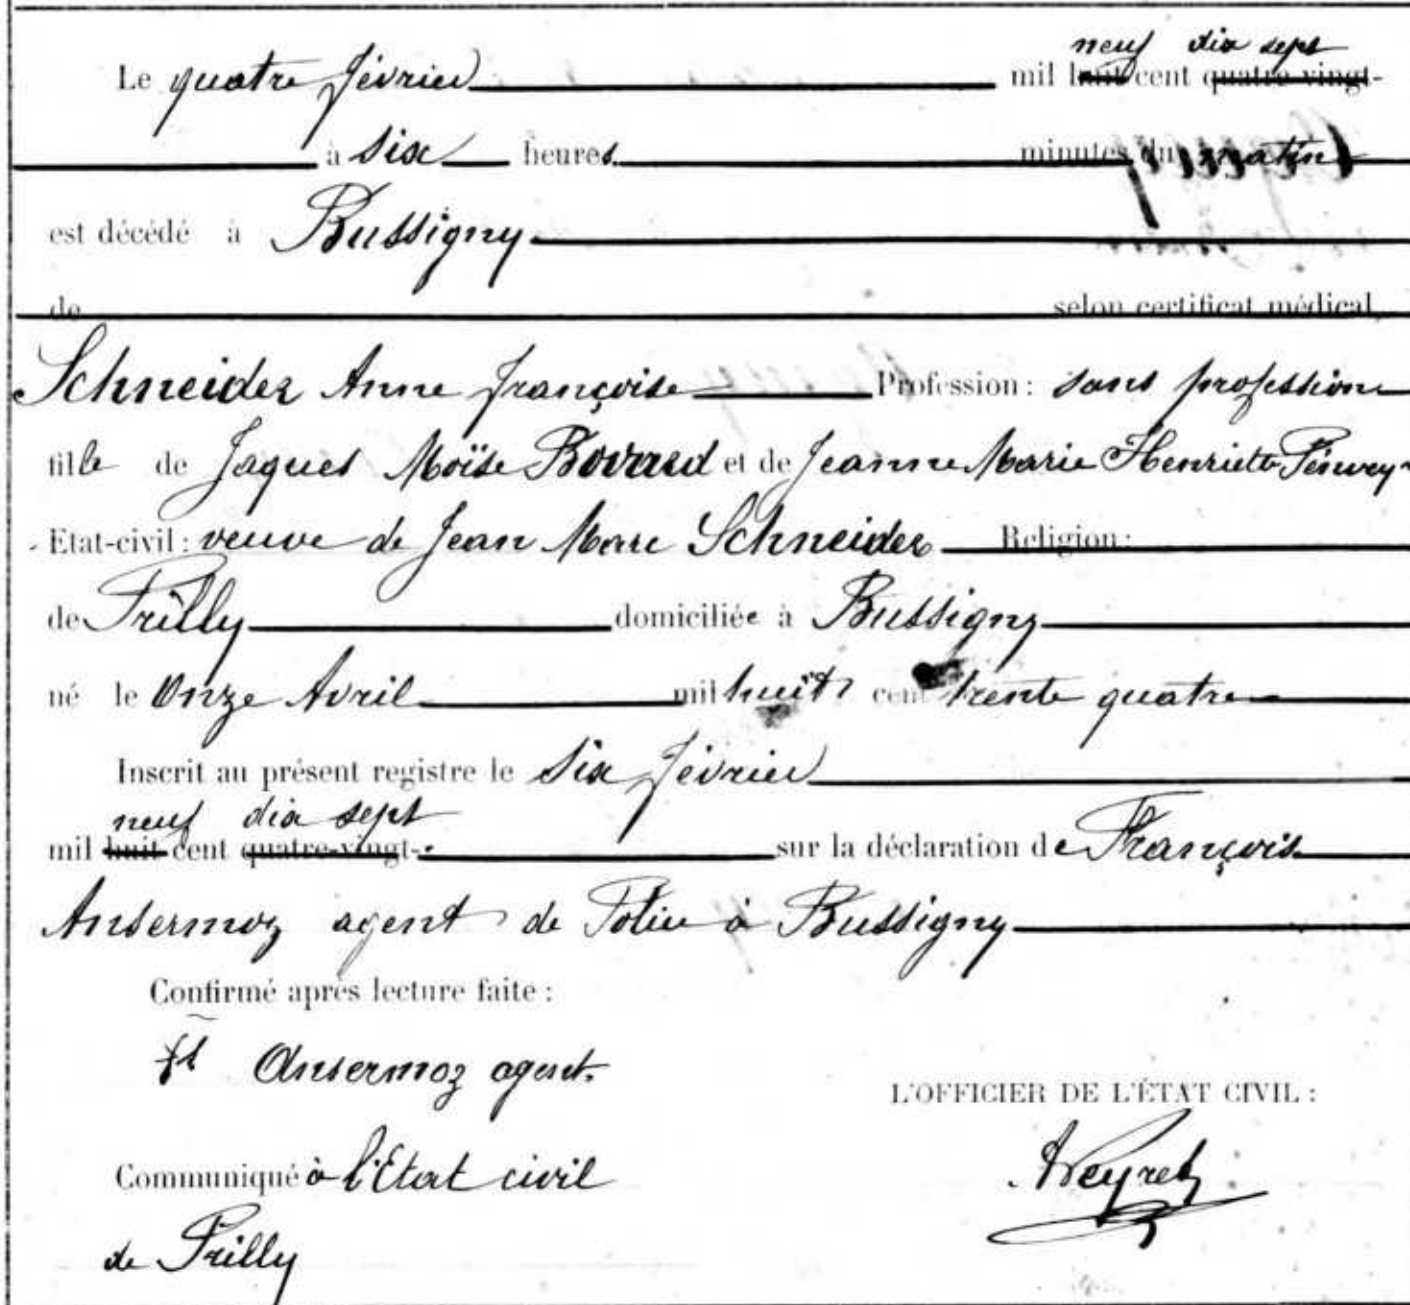 neuf dix sept
Le quatre février mil huit cent quatre-vingt-
à six heures minutes du matin
est décédé à Bussigny
de selon certificat médical
Schneider Anne Françoise Profession : sans profession
fille de Jaques Moïse Bovard et de Jeanne Marie Henriette
Etat-civil : veuve de Jean Marc Schneider Religion :
de Prilly domiciliée à Bussigny
né le Onze Avril mil huit cent trente quatre
Inscrit au présent registre le six février
neuf dix sept
mil huit cent quatre-vingt- sur la déclaration de François
Ansermoz agent de Police à Bussigny
Confirmé après lecture faite :
Ansermoz agent.
L'OFFICIER DE L'ÉTAT CIVIL :
Communiqué à l'Etat civil
de Prilly